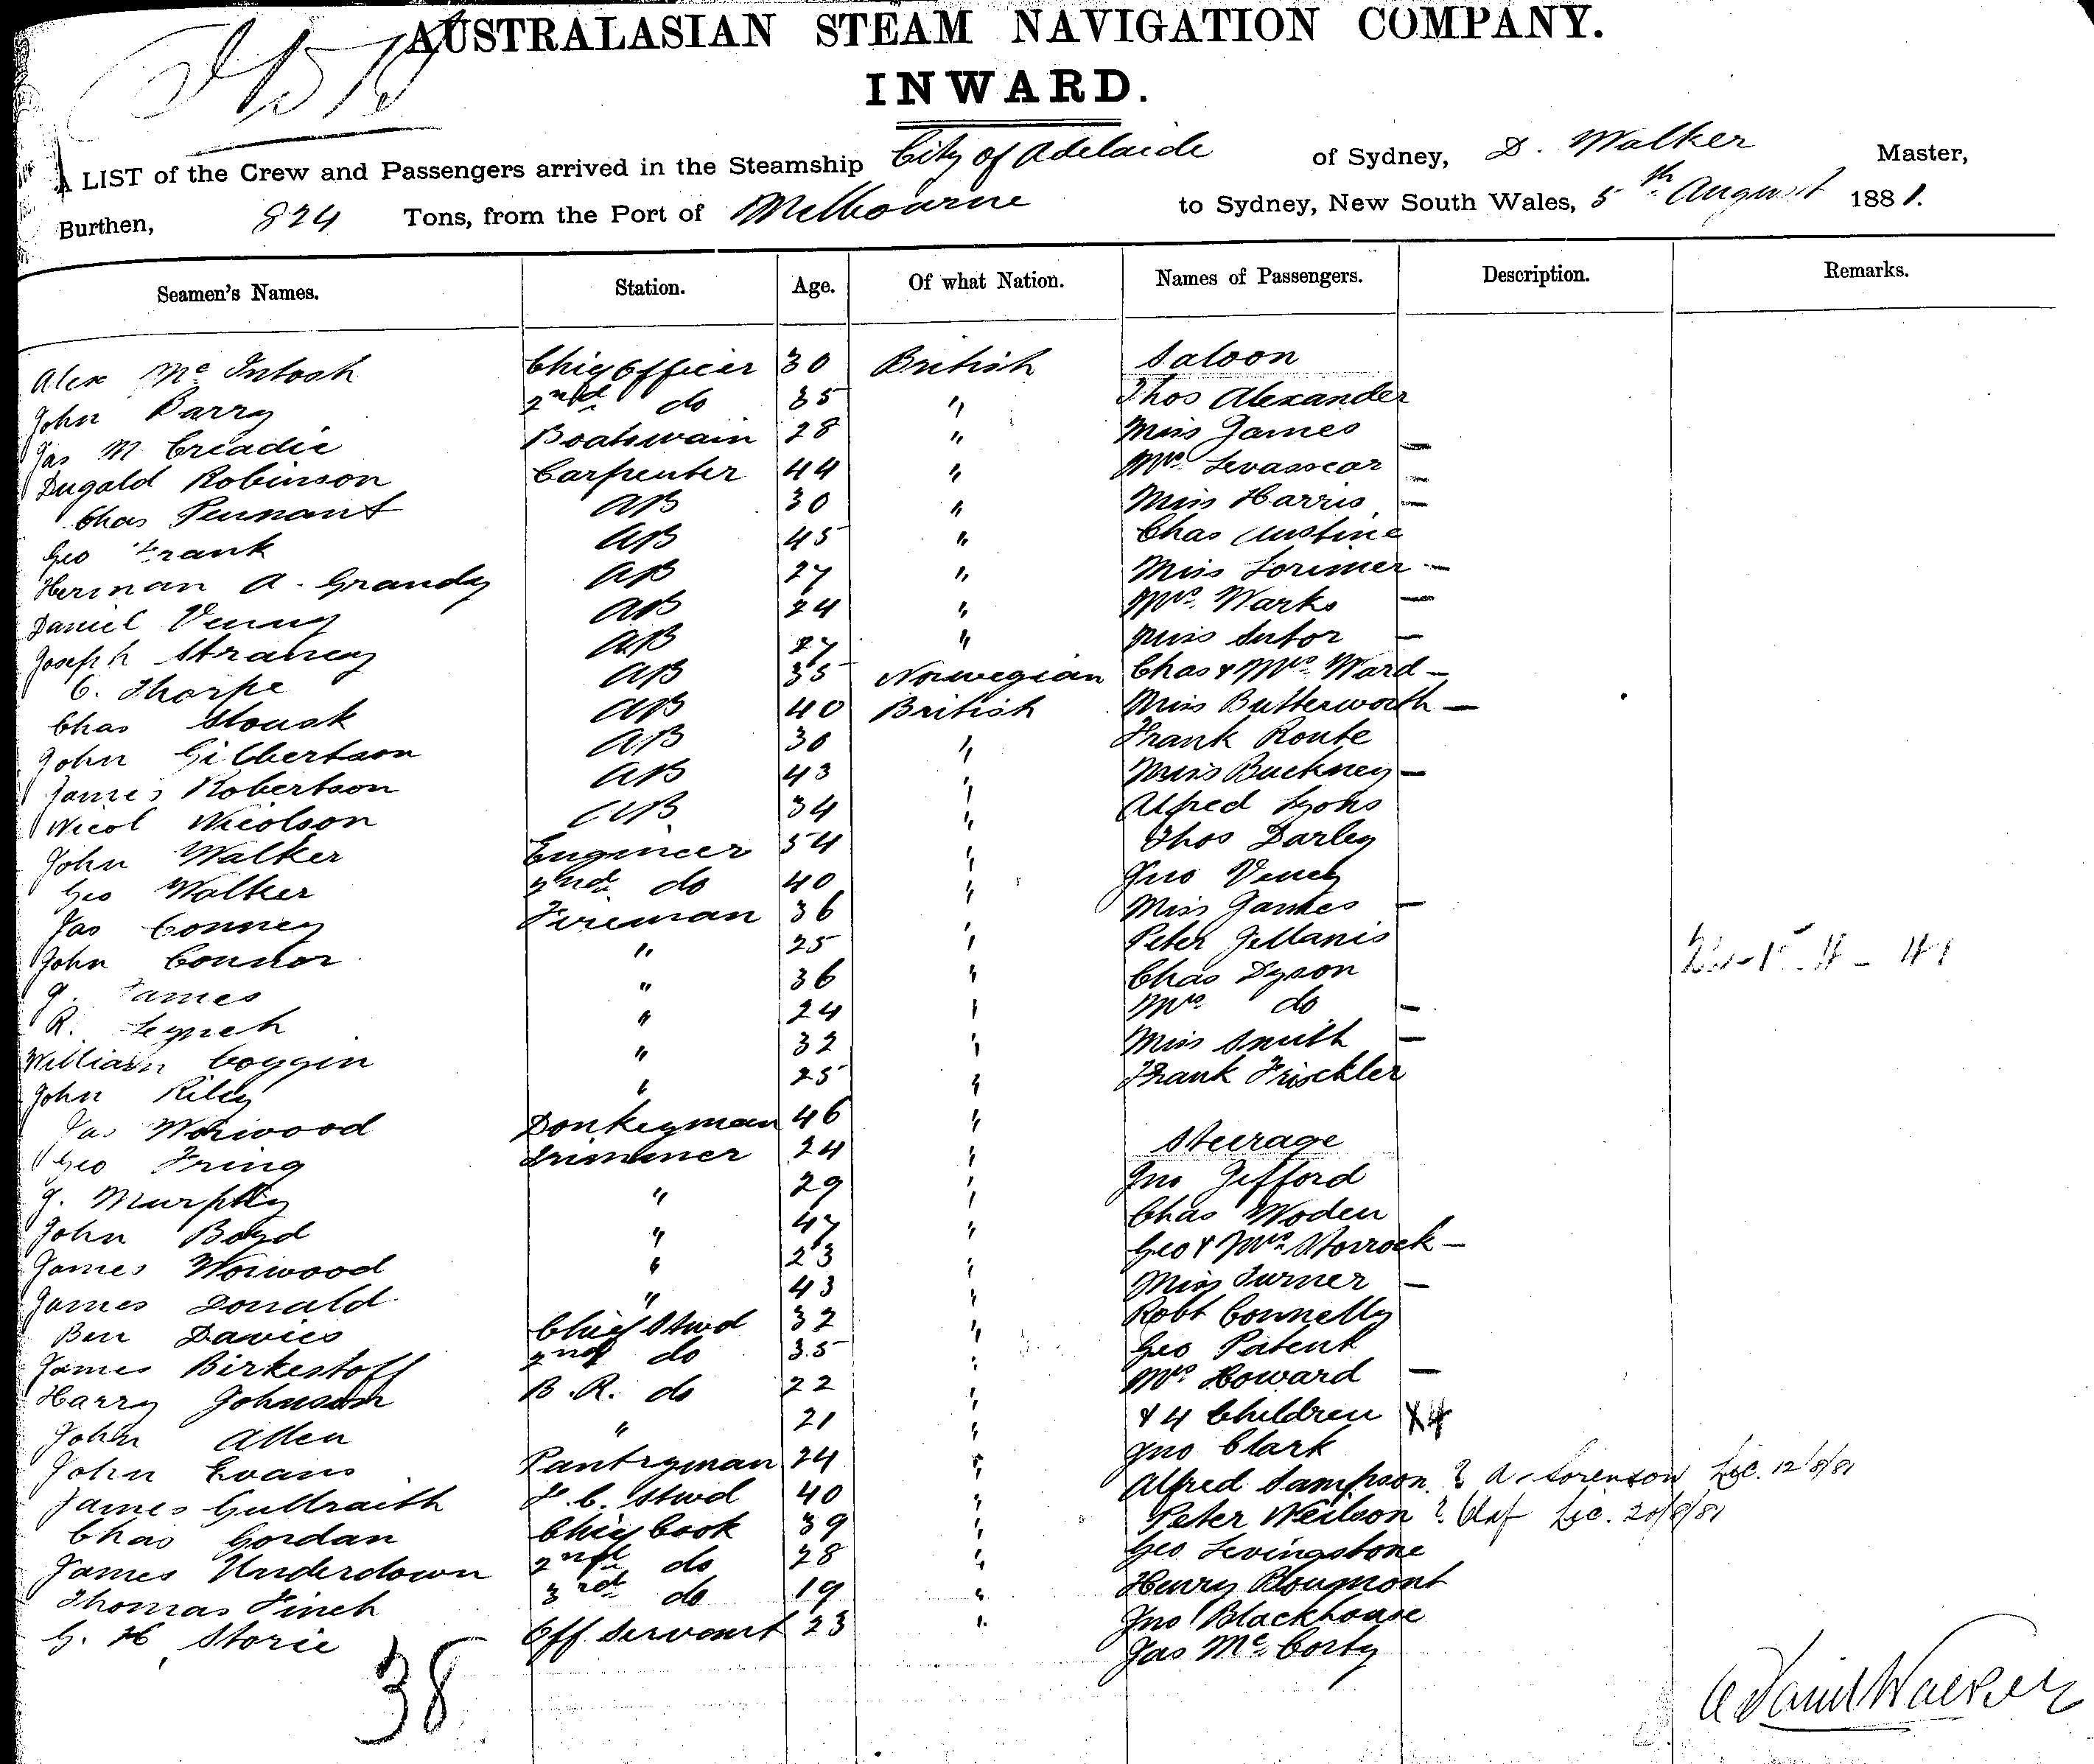 AUSTRALASIAN STEAM NAVIGATION COMPANY.
INWARD.
A LIST of the Crew and Passengers arrived in the Steamship City of Adelaide of Sydney, D. Walker Master,
Burthen, 824 Tons, from the Port of Melbourne to Sydney, New South Wales, 5th August 1881.
Seamen's Names. Station. Age. Of what Nation. Names of Passengers. Description. Remarks.
Alex Mc Intosh Chief Officer 30 British Saloon
John Barry 2nd do 35 " Thos Alexander
Jas M Creadie Boatswain 28 " Miss James —
Dugald Robinson Carpenter 44 " Mrs Levassear —
Chas Pennant AB 30 " Miss Harris —
Geo Frank AB 45 " Chas Austine
Herman A. Grandy AB 27 " Miss Lorimer —
Daniel Venny AB 24 " Mrs Warks —
Joseph Straney AB 27 " Miss Sutor —
C. Thorpe AB 35 Norwegian Chas & Mrs Ward —
Chas Stousk AB 40 British Miss Butterworth —
John Gilbertson AB 30 " Frank Route
James Robertson AB 43 " Miss Buckney —
Nicol Nicolson AB 34 " Alfred Lyons
John Walker Engineer 54 " Thos Darley
Geo Walker 2nd do 40 " Jno Veney
Jas Conney Fireman 36 " Miss Jankes —
John Connor " 25 " Peter Gellanis
J. James " 36 " Chas Dyson
R. Lynch " 24 " Mrs do —
William Coggin " 32 " Miss Smith —
John Riley " 25 " Frank Frischler
Jas Norwood Donkeyman 46 "
Geo Fring Trimmer 24 " Steerage
J. Murphy " 29 " Jno Gifford
John Boyd " 47 " Chas Woden
James Norwood " 23 " Geo & Mrs Storrock —
James Donald " 43 " Miss Turner —
Ben Davies Chief Stwd 32 " Robt Connelly
James Birkestoff 2nd do 35 " Geo Patent
Harry Johnson B. R. do 22 " Mrs Howard —
John Allen " 21 " & 4 Children X4
John Evans Pantryman 24 " Jno Clark
James Gullraith F. C. Stwd 40 " Alfred Sampson ? A. Sorenson Lic. 12/8/81
Chas Gordan Chief Cook 39 " Peter Neilson ? Olaf Lic. 20/8/81
James Underdown 2nd do 28 " Geo Levingstone
Thomas Finch 3rd do 19 " Henry Bloumont
G. H. Storie Off Servant 23 " Jno Blackhouse
Jas Mc Corty
38